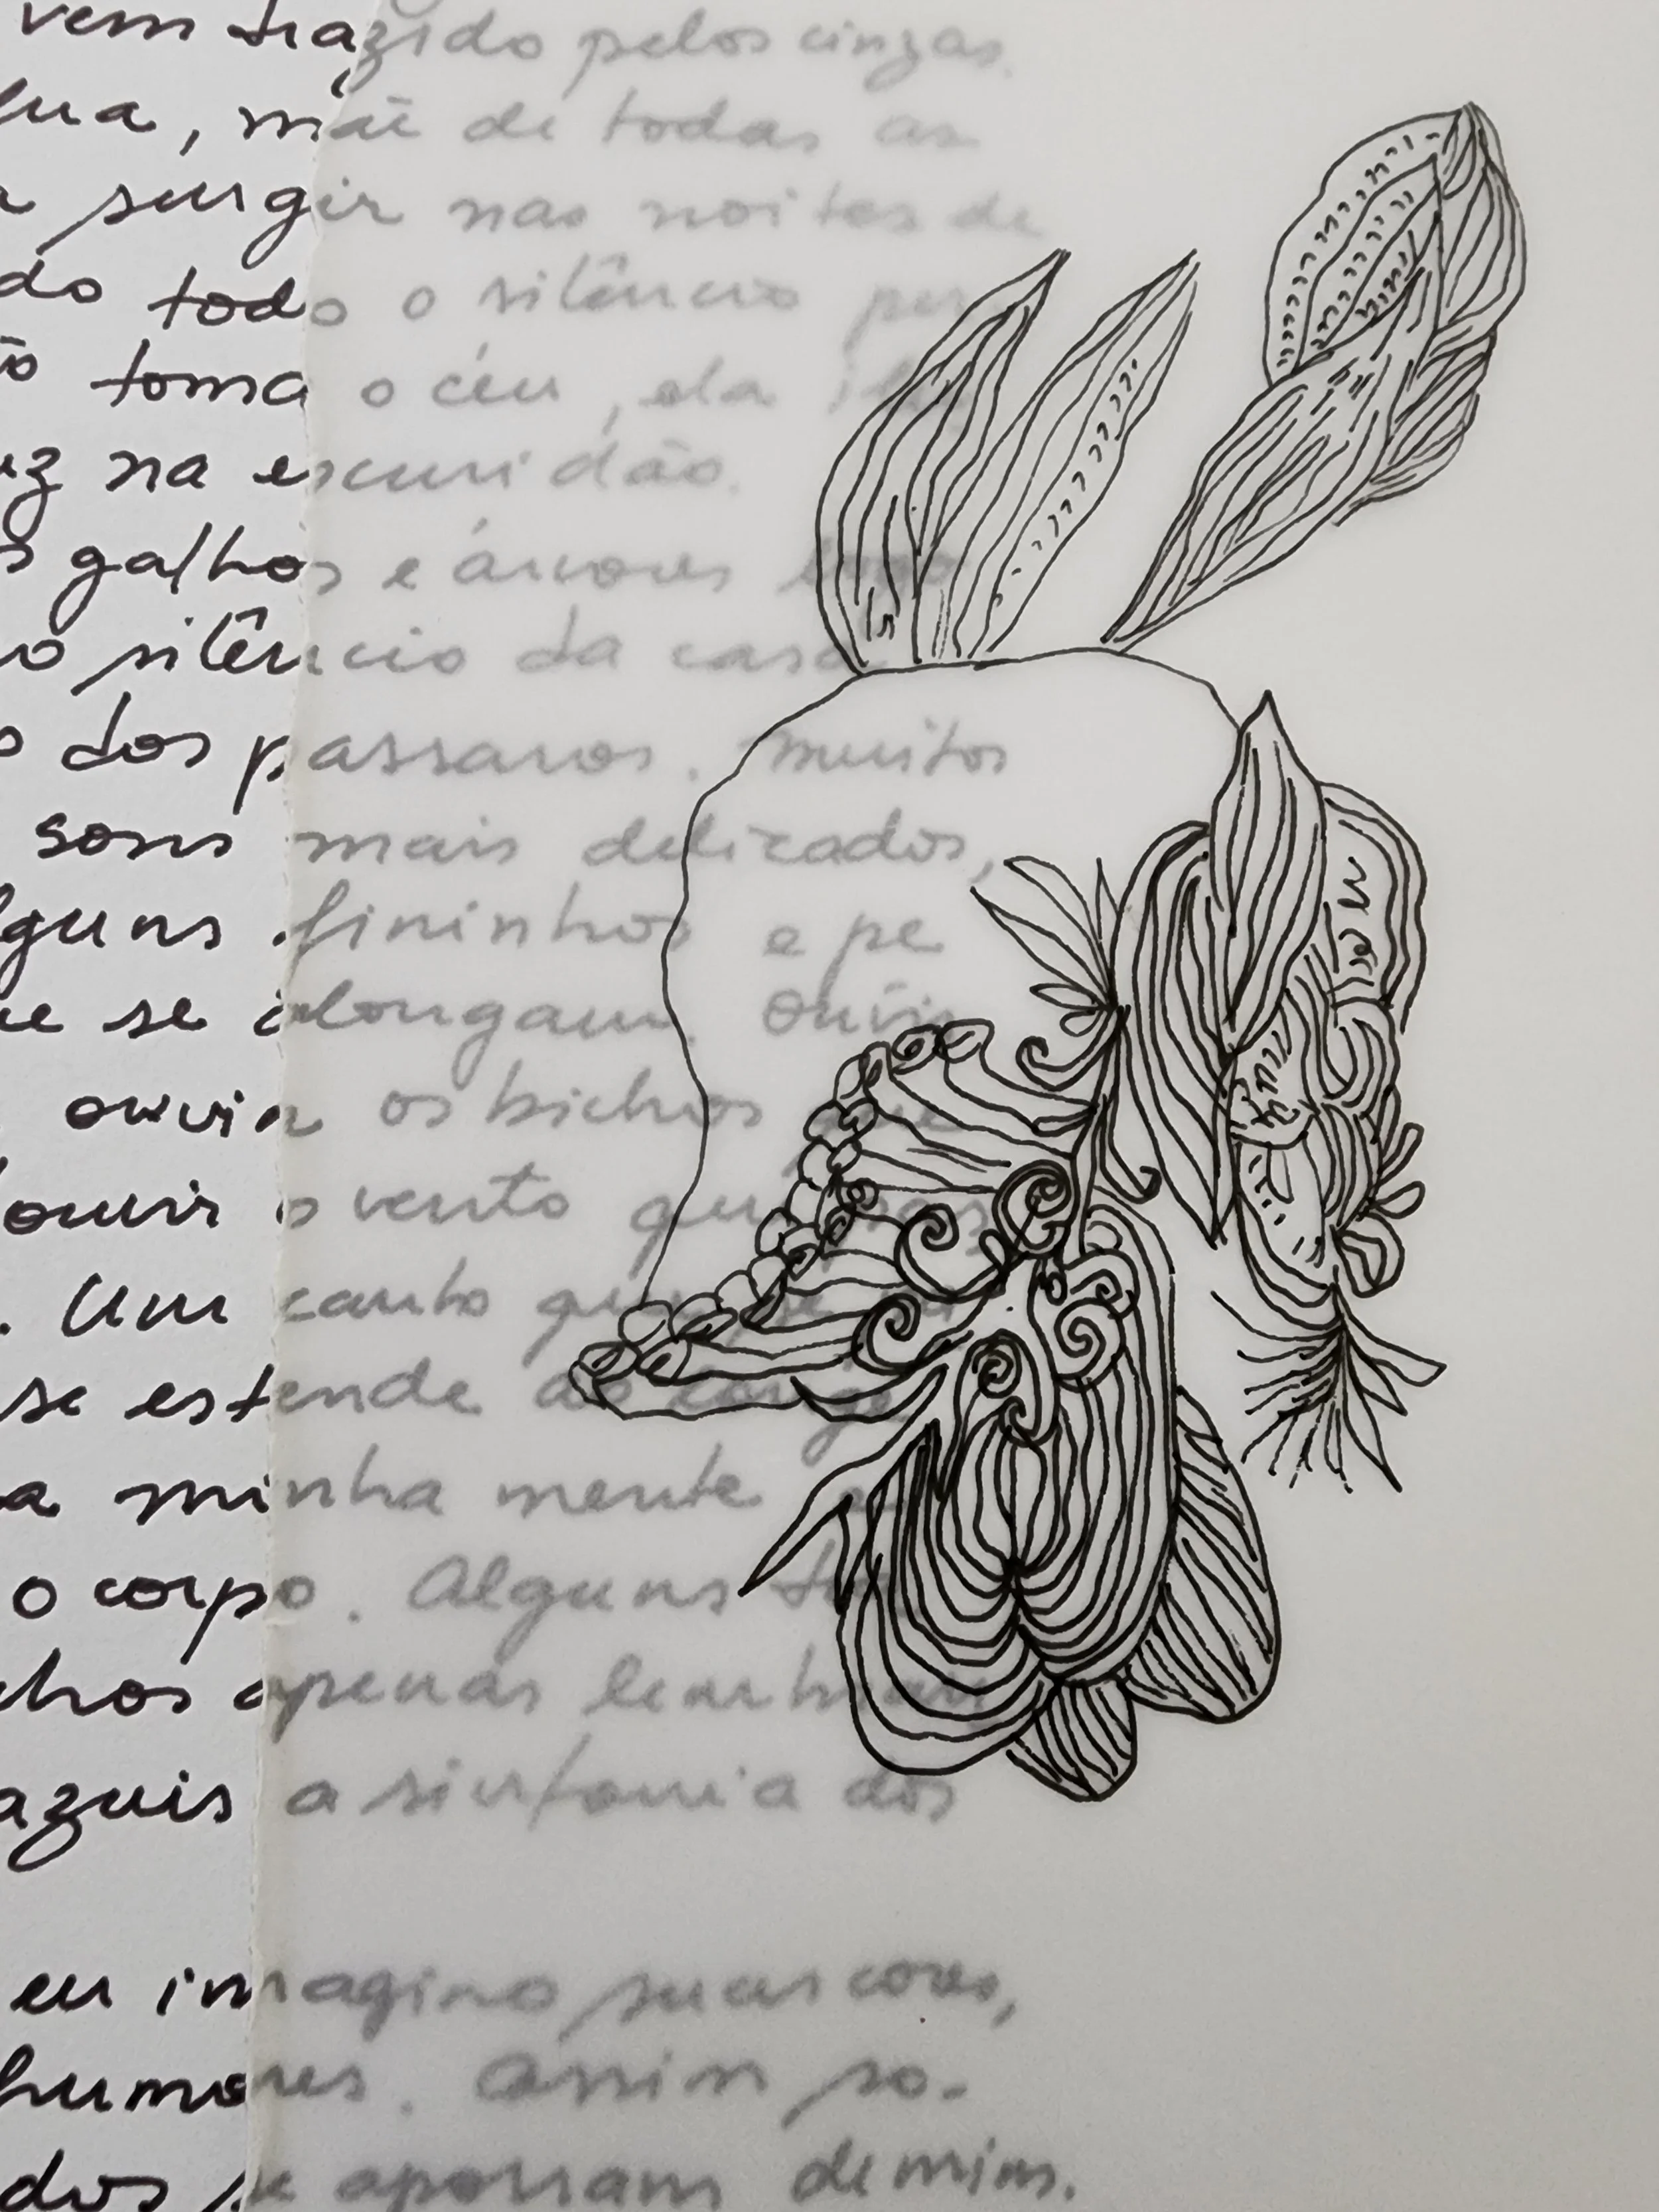 vem trazido pelos cinzas.
lua, mãe de todas as
surgir nas noites de
do todo o silêncio
toma o céu, ela
na escuridão.
galhos e árvores
silêncio da casa
dos passaros. Muitos
sons mais delicados,
alguns fininhos e pe
se alongam. Ouvir
ouvir os bichos que
ouvir o vento que
. Um canto que
se estende ao longe
minha mente
o corpo. Alguns
apenas lembram
azuis a sinfonia dos
eu imagino suas cores,
humores. Assim so-
se apossam de mim.